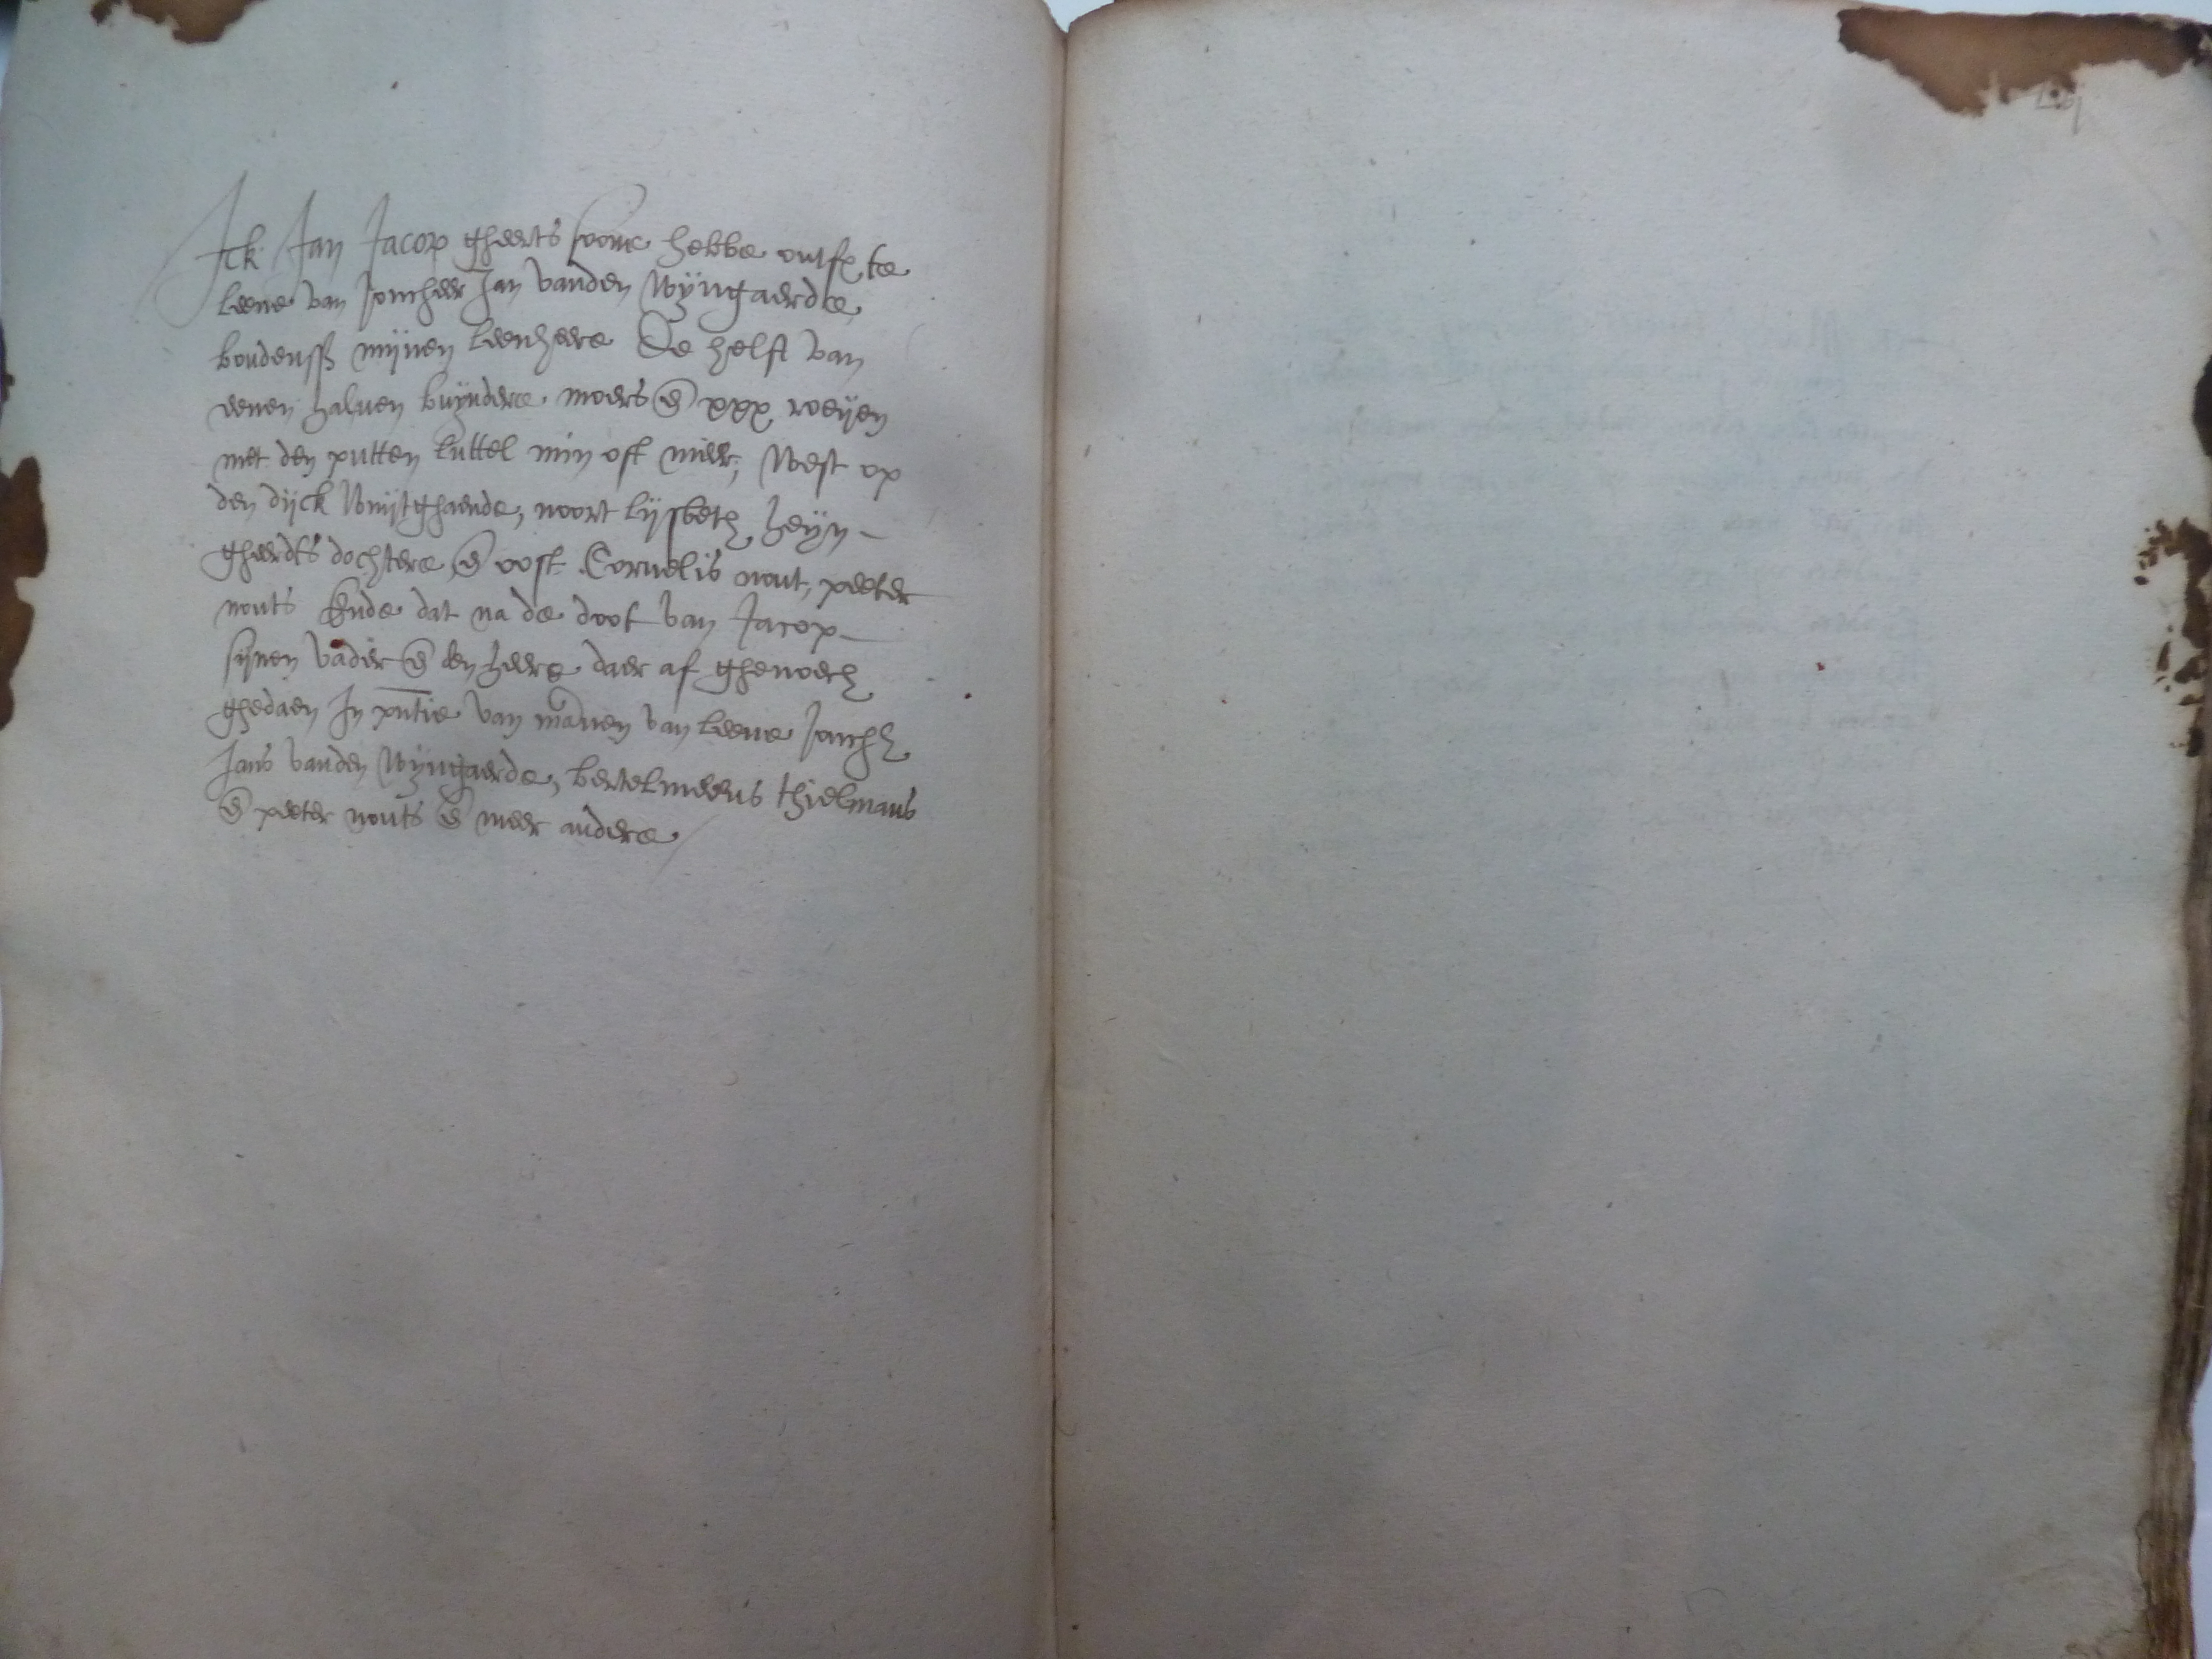 Ick Jan Jacop gheerts sone hebbe ontf te
leene van Joncheer Jan vanden Wijngaerde
boudenss mijnen leenheere De helft van
eenen halven buyndere moers en xxx roeyen
met den putten luttel min oft meer, West op
den dijck Wuijtghaende, noort lijsbeth heyn
gheerdts dochtere en oost Cornelis nout, peeter
nouts Ende dat na de doot van Jacop
sijnen vader en den heere daer af ghenoech
ghedaen In pntie van mannen van leene Jonch
Jans vanden Wyngaerde, bertelmeeus thielmans
en peeter nouts en meer andere